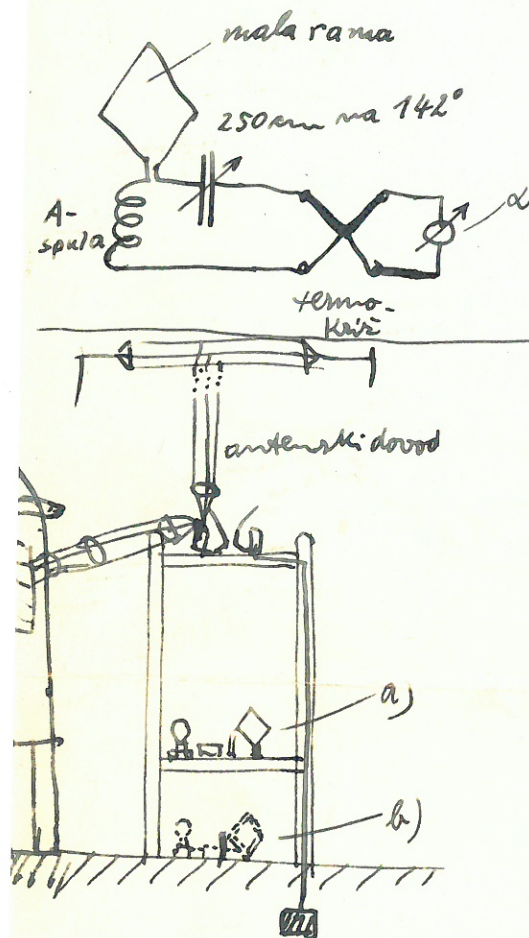 mala rama
250 cm na 142°
A-
spula
α
termo-
križ
antenski dovod
a)
b)